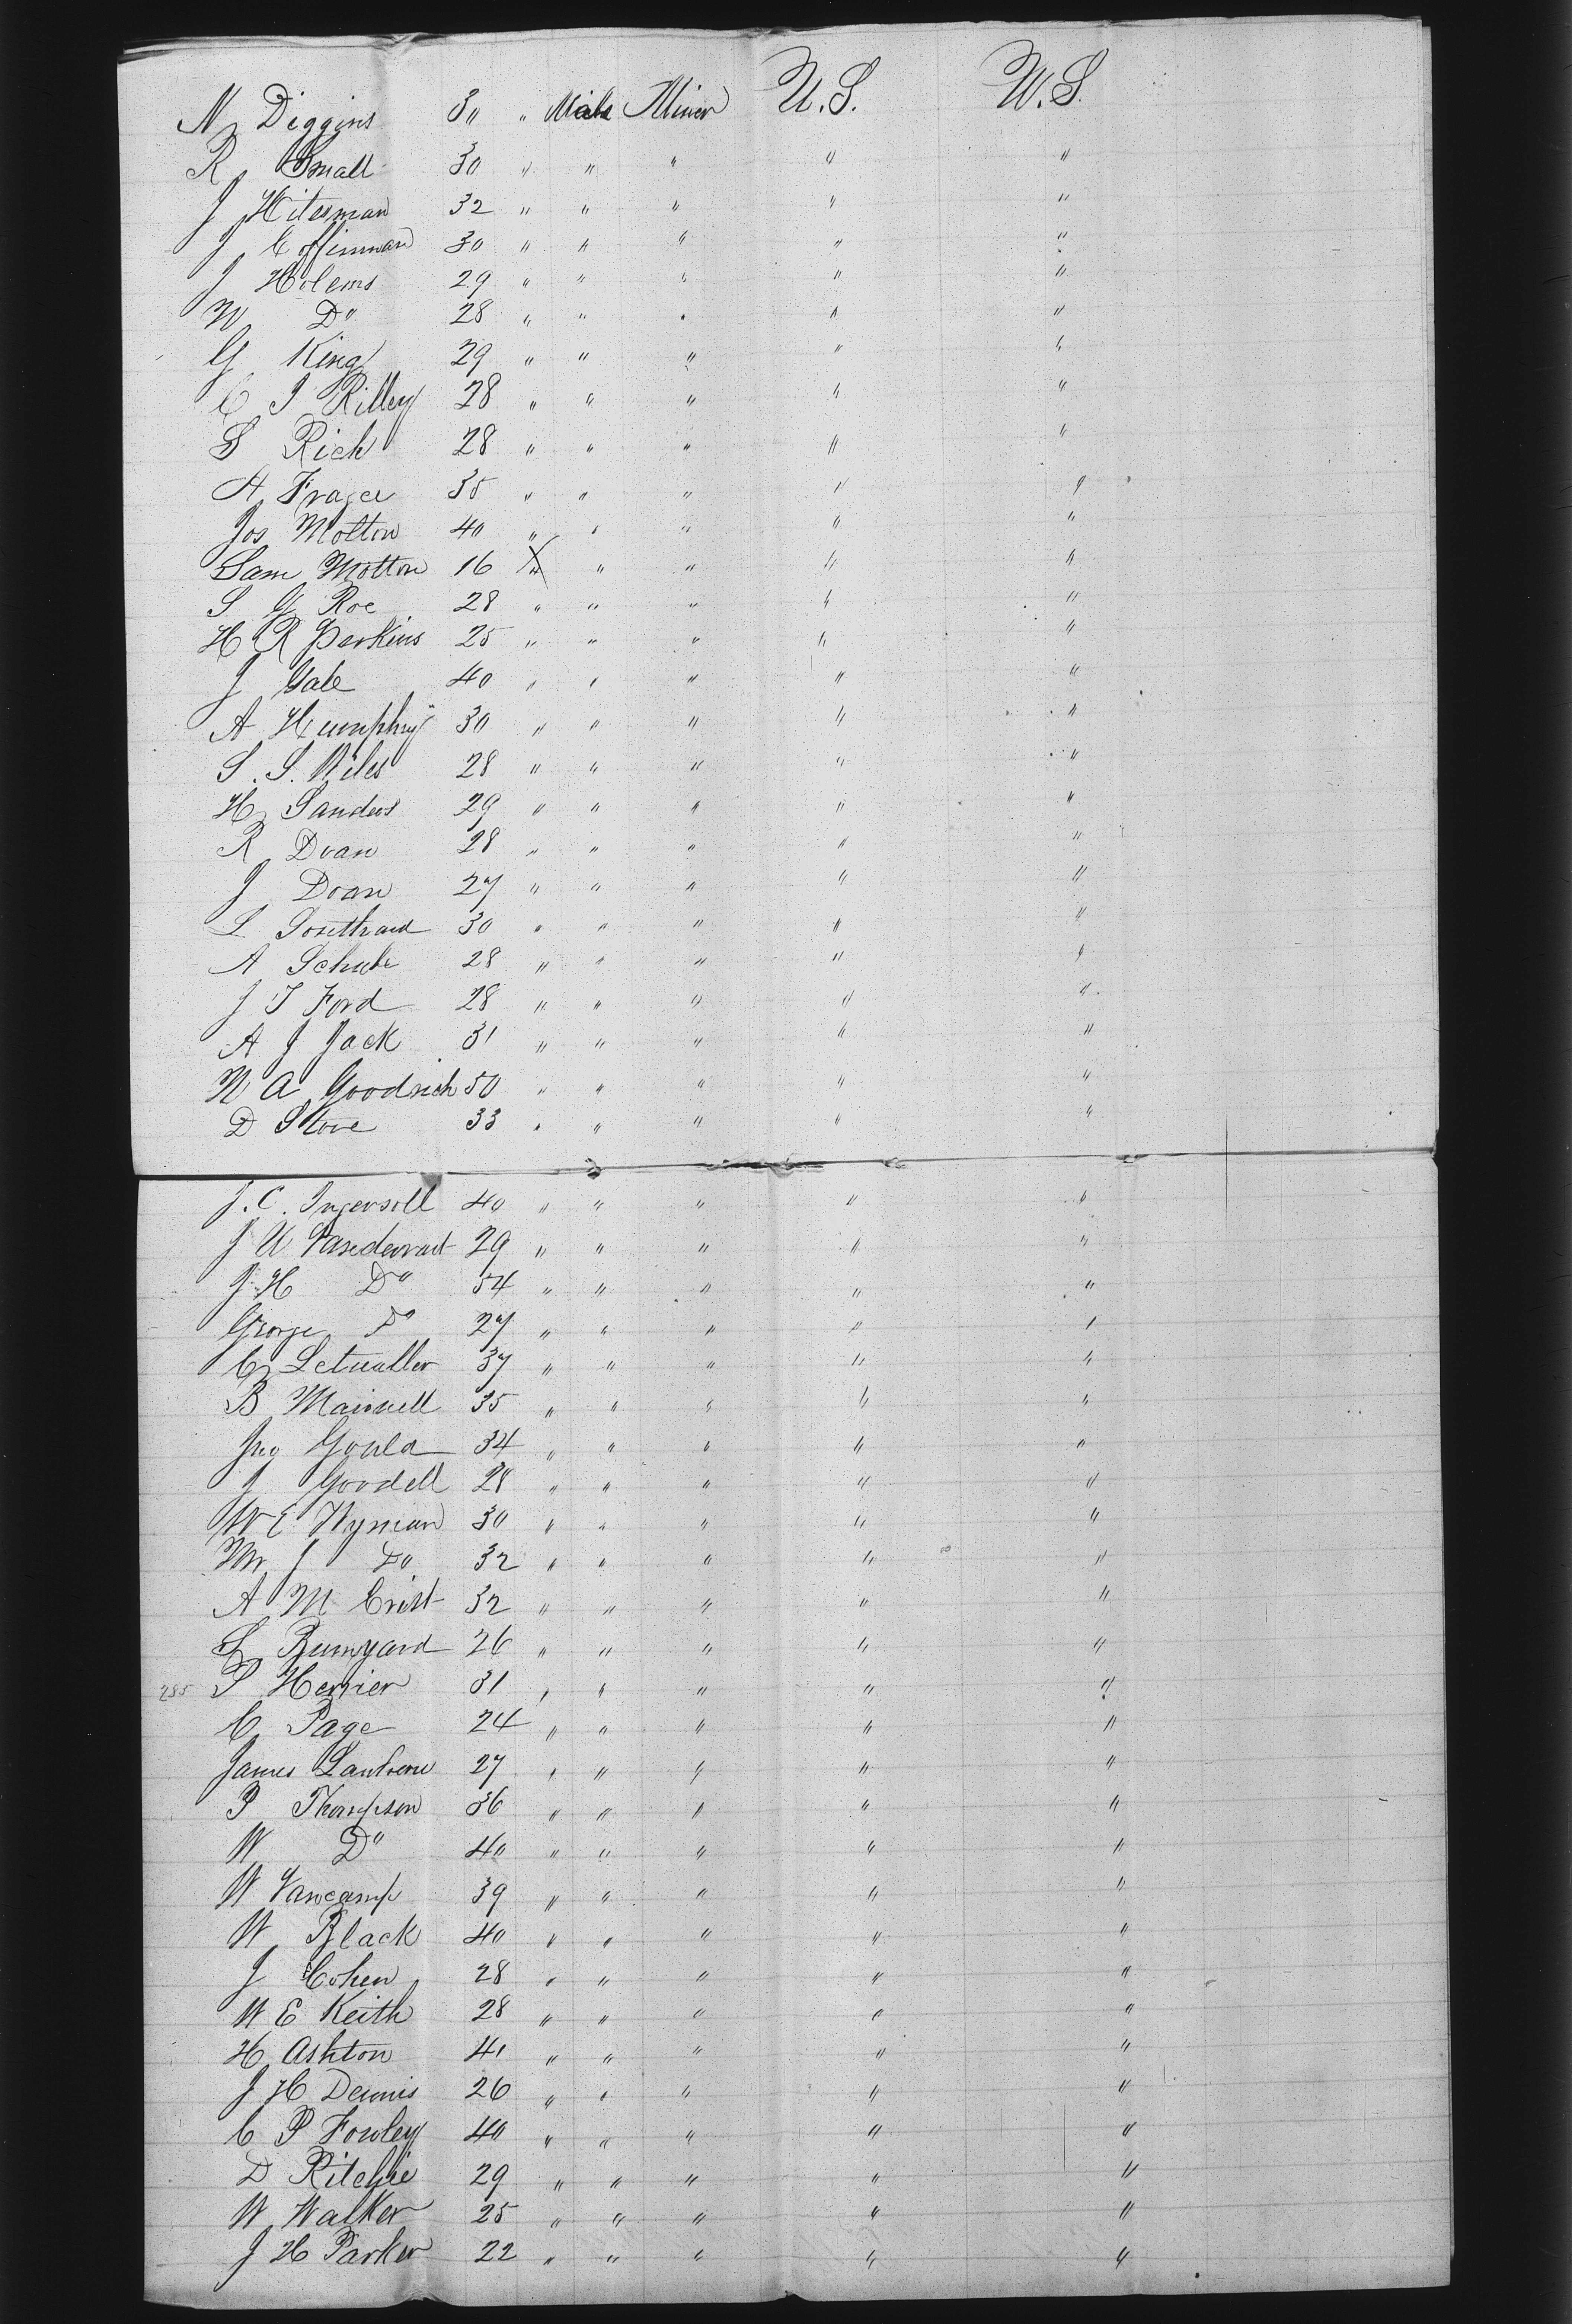 N Diggins 30 " Male Miner U.S. U.S.
R Small 30 " " " " "
J Hitesman 32 " " " " "
J Coffinman 30 " " " " "
J Holems 29 " " " " "
W Do 28 " " " " "
G King 29 " " " " "
C J Rilley 28 " " " " "
S Rich 28 " " " " "
A Frazer 35 " " " " "
Jos Motton 40 " " " " "
Sam Motton 16 " " " " "
S G Roe 28 " " " " "
H R Perkins 25 " " " " "
J Gale 40 " " " " "
A Humphry 30 " " " " "
S. S. Niles 28 " " " " "
H Sanders 29 " " " " "
R Doan 28 " " " " "
J Doan 27 " " " " "
L 30 " " " " "
A 28 " " " " "
J T Ford 28 " " " " "
A J Jack 31 " " " " "
N A Goodrich 50 " " " " "
D Stone 33 " " " " "
J. C. Ingersoll 40 " " " " "
J U 29 " " " " "
J. H Do 54 " " " " "
George Do 27 " " " " "
C 37 " " " " "
B 35 " " " " "
Jno Gould 34 " " " " "
J Goodell 28 " " " " "
W E Wyman 30 " " " " "
Mr J Do 32 " " " " "
A M Crist 32 " " " " "
S Bunyard 26 " " " " "
285 P Herrier 31 " " " " "
C Page 24 " " " " "
James 27 " " " " "
P Thompson 36 " " " " "
W Do 40 " " " " "
W Vancamp 39 " " " " "
W Black 40 " " " " "
J Cohen 28 " " " " "
W E Keith 28 " " " " "
H Ashton 41 " " " " "
J H Dennis 26 " " " " "
C P Fowley 40 " " " " "
D Ritchie 29 " " " " "
W Walker 25 " " " " "
J H Parker 22 " " " " "